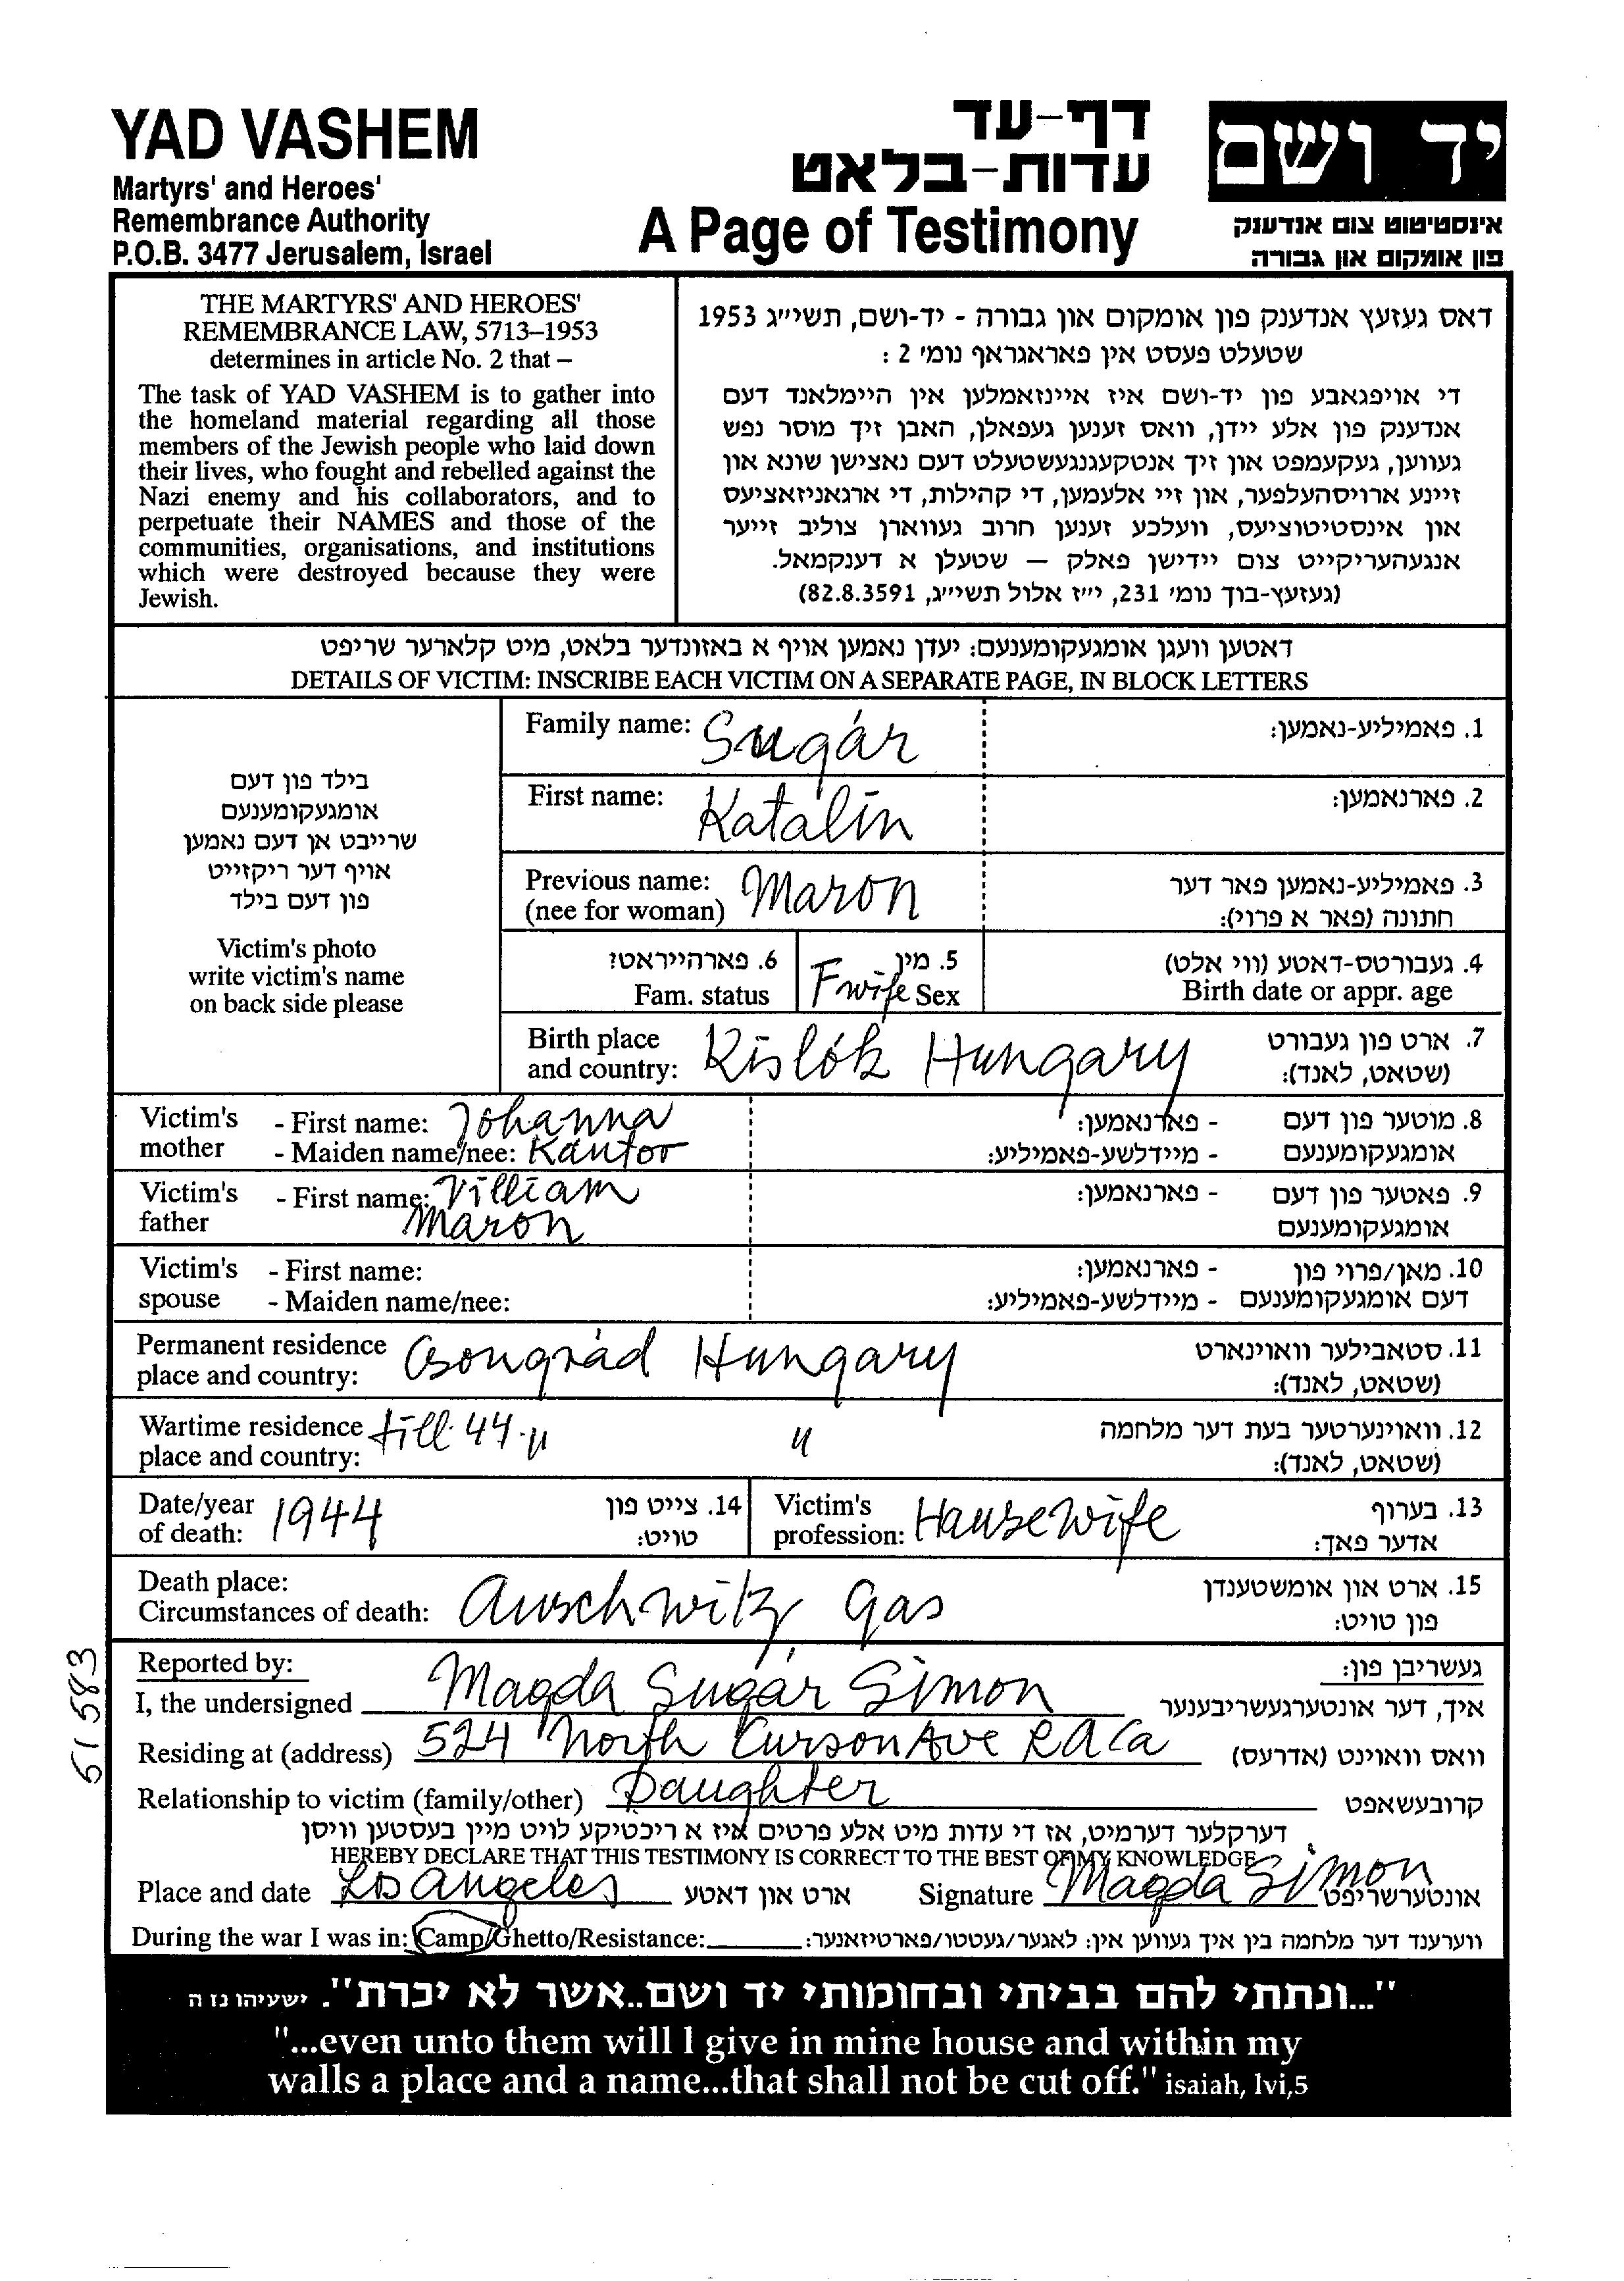 YAD VASHEM
Martyrs' and Heroes'
Remembrance Authority
P.O.B. 3477 Jerusalem, Israel
דף-עד
עדות-בלאט
A Page of Testimony
יד ושם
אינסטיטוט צום אנדענק
פון אומקום און גבורה
THE MARTYRS' AND HEROES'
REMEMBRANCE LAW, 5713–1953
determines in article No. 2 that –
The task of YAD VASHEM is to gather into
the homeland material regarding all those
members of the Jewish people who laid down
their lives, who fought and rebelled against the
Nazi enemy and his collaborators, and to
perpetuate their NAMES and those of the
communities, organisations, and institutions
which were destroyed because they were
Jewish.
דאס געזעץ אנדענק פון אומקום און גבורה - יד-ושם, תשי״ג 1953
שטעלט פעסט אין פאראגראף נומ׳ 2 :
די אויפגאבע פון יד-ושם איז איינזאמלען אין היימלאנד דעם
אנדענק פון אלע יידן, וואס זענען געפאלן, האבן זיך מוסר נפש
געווען, געקעמפט און זיך אנטקעגנגעשטעלט דעם נאצישן שונא און
זיינע ארויסהעלפער, און זיי אלעמען, די קהילות, די ארגאניזאציעס
און אינסטיטוציעס, וועלכע זענען חרוב געווארן צוליב זייער
אנגעהעריקייט צום יידישן פאלק — שטעלן א דענקמאל.
(געזעץ-בוך נומ׳ 231, י״ז אלול תשי״ג, 82.8.3591)
דאטען וועגן אומגעקומענעם: יעדן נאמען אויף א באזונדער בלאט, מיט קלארער שריפט
DETAILS OF VICTIM: INSCRIBE EACH VICTIM ON A SEPARATE PAGE, IN BLOCK LETTERS
בילד פון דעם
אומגעקומענעם
שרייבט אן דעם נאמען
אויף דער ריקזייט
פון דעם בילד
Victim's photo
write victim's name
on back side please
Family name: Sugár 1. פאמיליע-נאמען:
First name: Katalin 2. פארנאמען:
Previous name: Maron 3. פאמיליע-נאמען פאר דער
(nee for woman) חתונה (פאר א פרוי):
6. פארהייראט? 5. מין 4. געבורטס-דאטע (ווי אלט)
Fam. status F wife Sex Birth date or appr. age
Birth place Kislók Hungary 7. ארט פון געבורט
and country: (שטאט, לאנד):
Victim's - First name: Johanna - פארנאמען: 8. מוטער פון דעם
mother - Maiden name/nee: Kantor - מיידלשע-פאמיליע: אומגעקומענעם
Victim's - First name: Villiam - פארנאמען: 9. פאטער פון דעם
father Maron אומגעקומענעם
Victim's - First name: - פארנאמען: 10. מאן/פרוי פון
spouse - Maiden name/nee: - מיידלשע-פאמיליע: דעם אומגעקומענעם
Permanent residence Csongrád Hungary 11. סטאבילער וואוינארט
place and country: (שטאט, לאנד):
Wartime residence till 44 " " 12. וואוינערטער בעת דער מלחמה
place and country: (שטאט, לאנד):
Date/year 1944 14. צייט פון Victim's HauseWife 13. בערוף
of death: טויט: profession: אדער פאך:
Death place: Auschwitz, gas 15. ארט און אומשטענדן
Circumstances of death: פון טויט:
Reported by: געשריבן פון:
I, the undersigned Magda Sugár Simon איך, דער אונטערגעשריבענער
Residing at (address) 524 North Curson Ave Ca וואס וואוינט (אדרעס)
Relationship to victim (family/other) Daughter קרובעשאפט
דערקלער דערמיט, אז די עדות מיט אלע פרטים איז א ריכטיקע לויט מיין בעסטען וויסן
HEREBY DECLARE THAT THIS TESTIMONY IS CORRECT TO THE BEST OF MY KNOWLEDGE
Place and date Los Angeles ארט און דאטע Signature Magda Simon אונטערשריפט
During the war I was in: Camp/Ghetto/Resistance: ווערענד דער מלחמה בין איך געווען אין: לאגער/געטטו/פארטיזאנער:
"...ונתתי להם בביתי ובחומותי יד ושם..אשר לא יכרת". ישעיהו נז ה
"...even unto them will I give in mine house and within my
walls a place and a name...that shall not be cut off." isaiah, lvi,5
61583